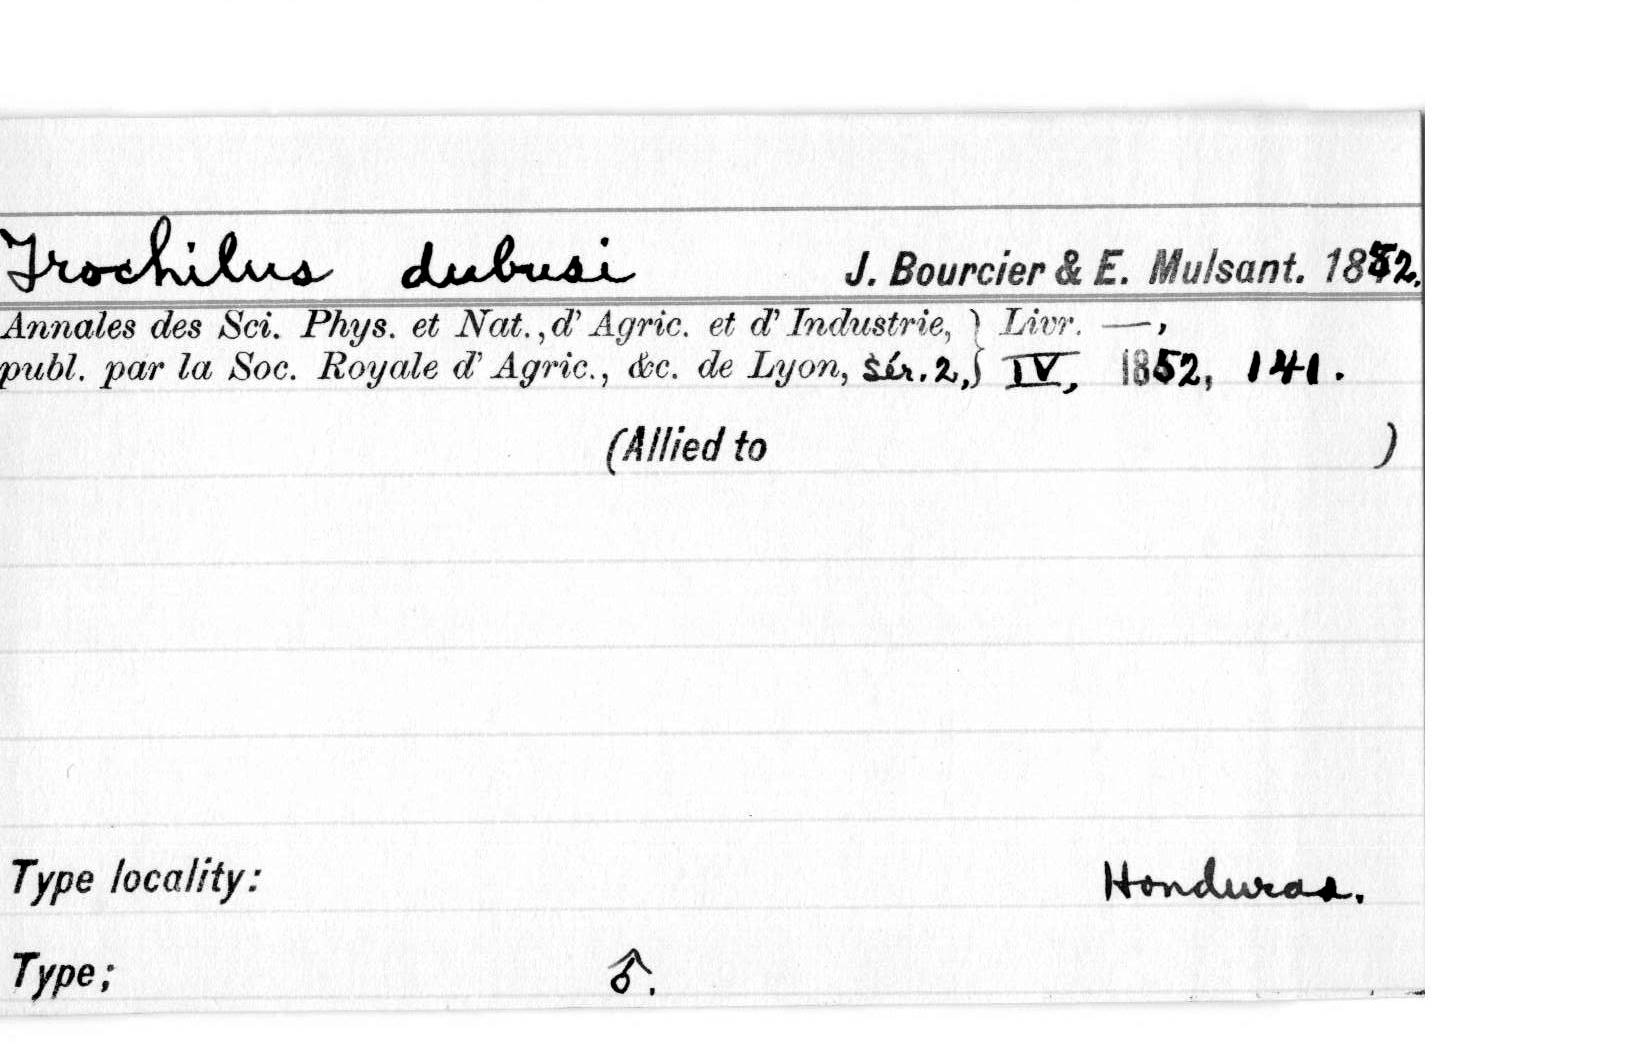 Trochilus dubusi J. Bourcier & E. Mulsant. 1852.
Annales des Sci. Phys. et Nat., d' Agric. et d' Industrie, } Livr. —,
publ. par la Soc. Royale d' Agric., &c. de Lyon, sér. 2, } IV, 1852, 141.
(Allied to )
Type locality: Honduras.
Type; ♂.